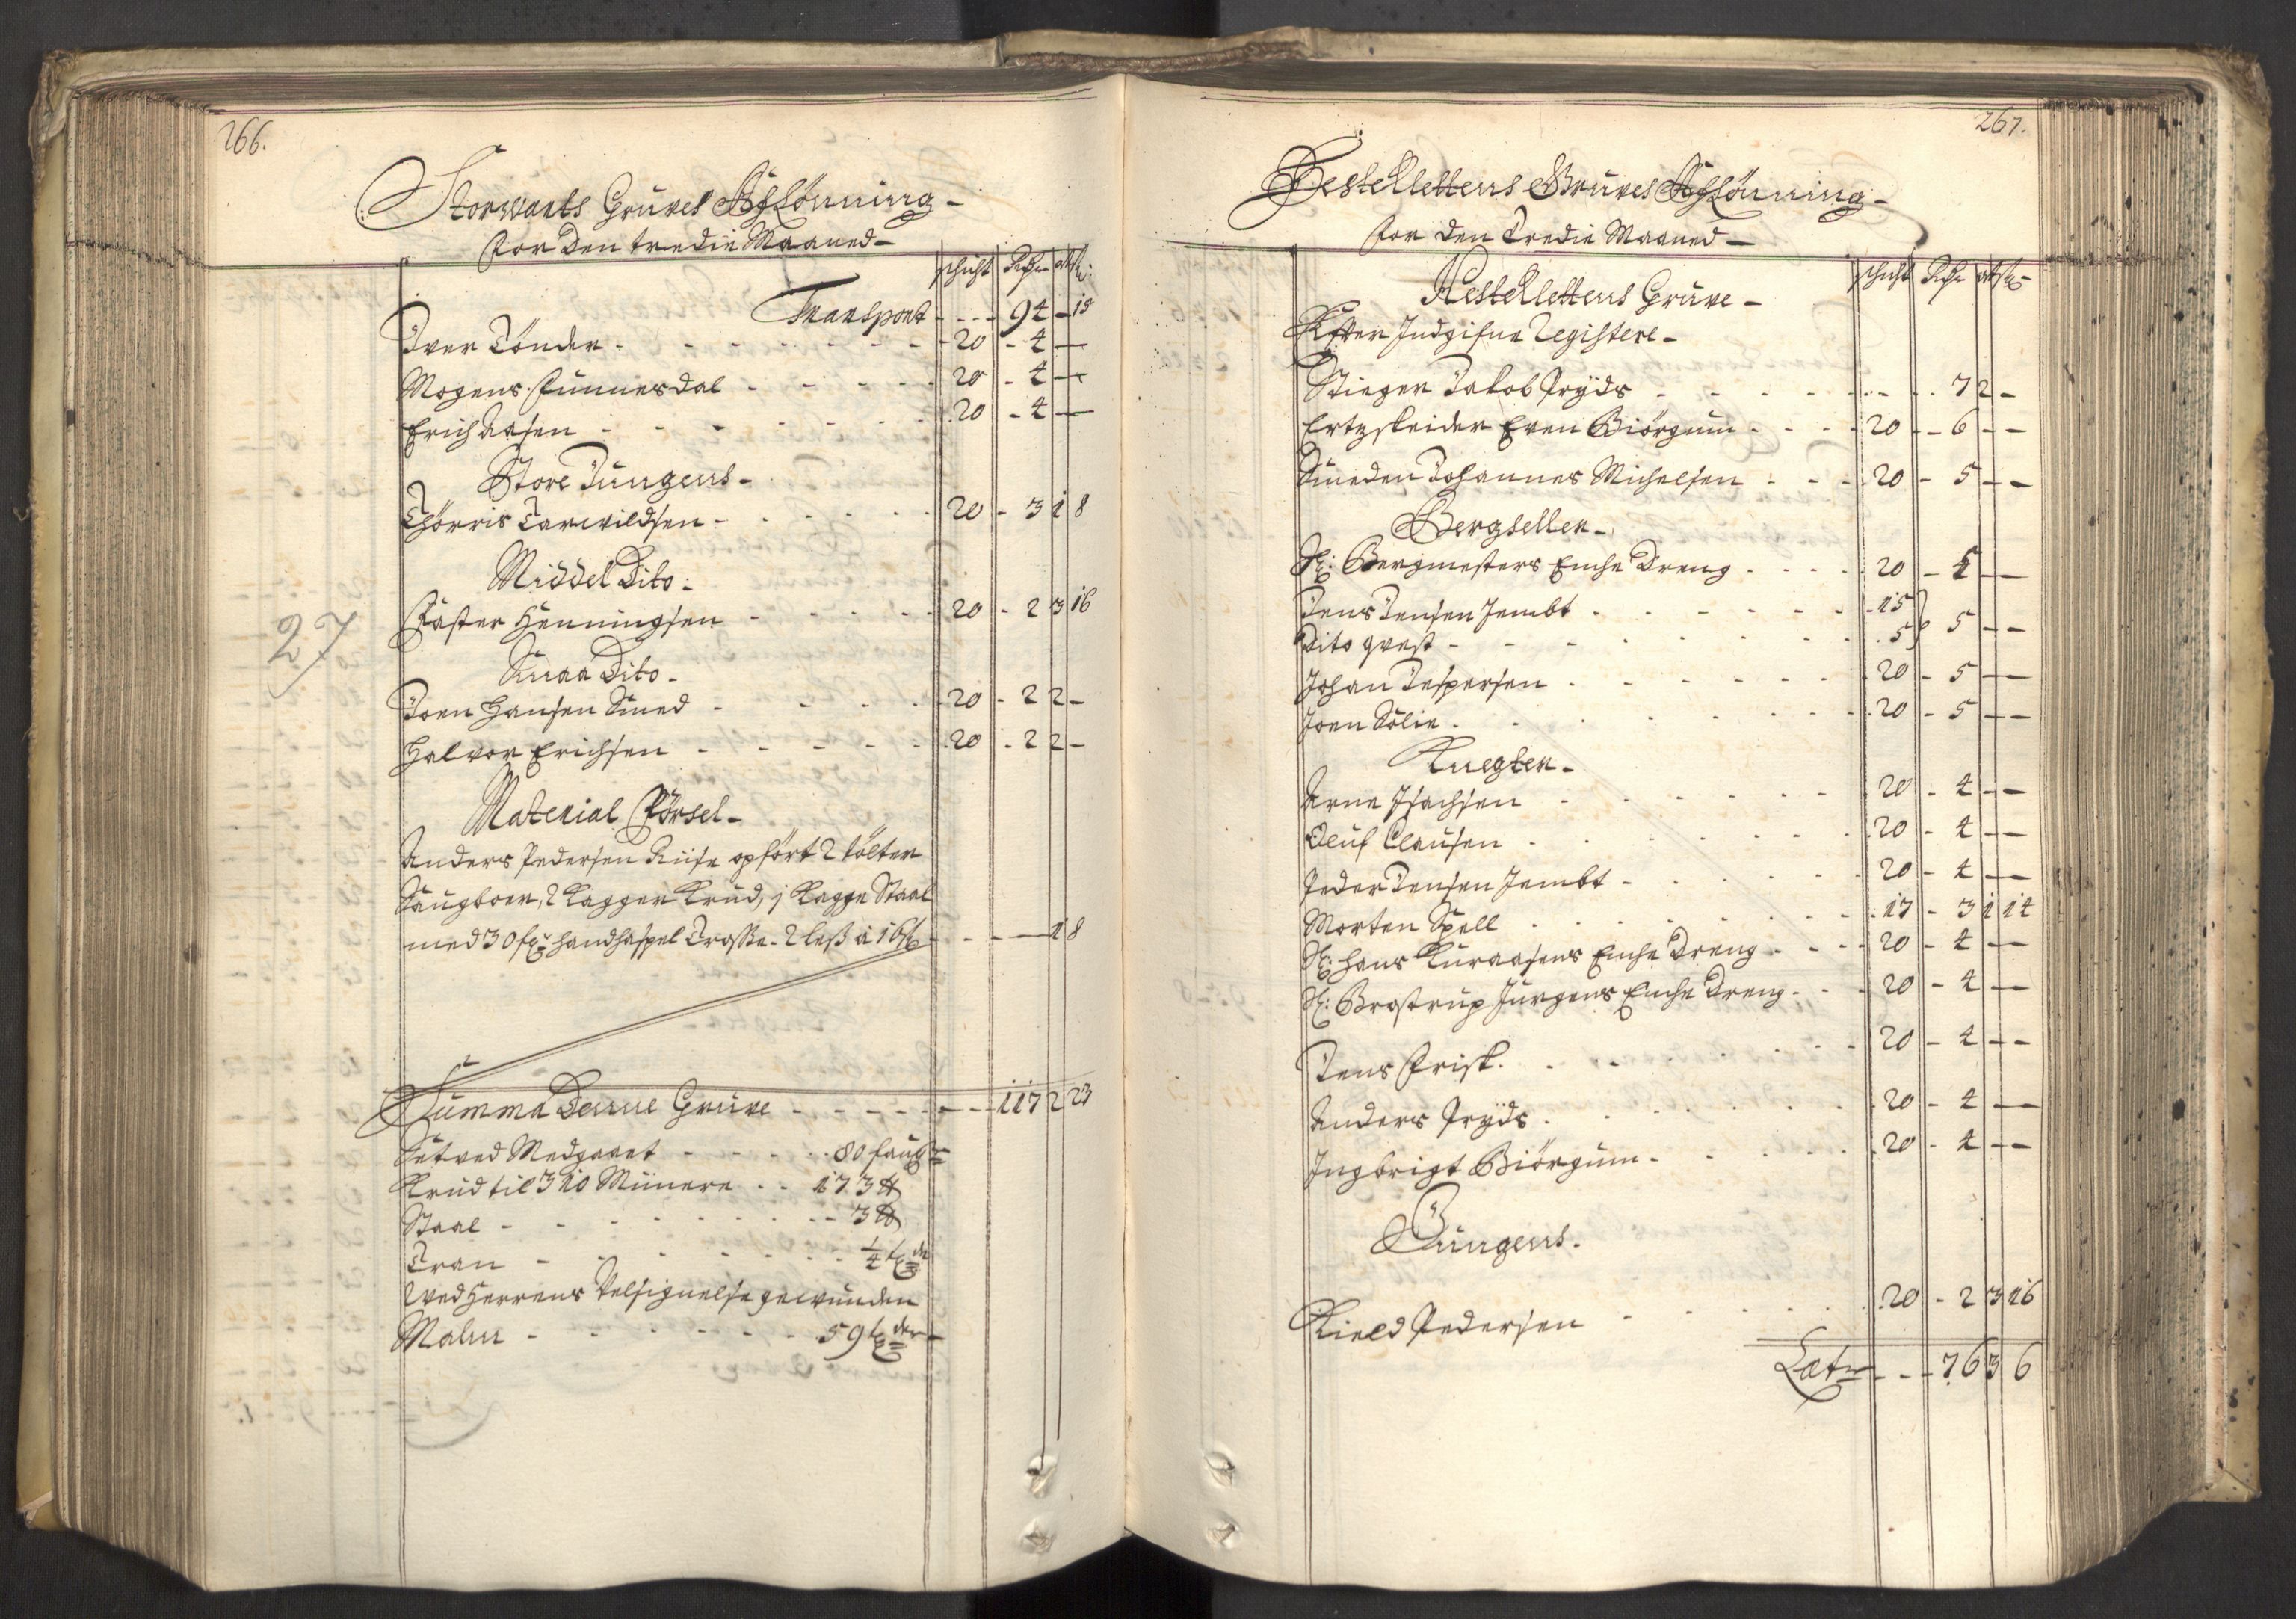 266.
Storwarts Gruves Afflönning
for den tredie Maaned
schicht Rdr ort ß
Transport - - - 94 - 15
Iver Tönder - 20 - 4 -
Mogens Funnesdal - 20 - 4 -
Erich Aasen - 20 - 4 -
Store Jungens
Thörris Tarvildsen - 20 - 3 1 8
Middel Dito
Faster Henningsen - 20 - 2 3 16
Smaa Dito
Joen Hansen Smed - 20 - 2 2 -
Halvor Erichsen - 20 - 2 2 -
Material Försel
Anders Pedersen Riise opført 2 tølter
Saugboer, 2 Kagger Krud, j Kagge Staal
med 30 handhaspel Trosse. 2 less à 16 ß - - - 1 8
Summa Denne Gruve - - - 117 2 23
Setved Medgaaet - - 80 faufn
Krud til 310 Minere - - 173 ℔
Staal - - 3 ℔
Tran - - 1/4 tde
Ved Herrens Velsignelse gewunden
Malm - - 59 tder
27
267.
Hestklettens Gruves Afflönning
for den Tredie Maaned
schicht Rdr ort ß
Hestklettens Gruve
Efter Indgifne Registere
Stieger Jakob Pryds - - - 7 2 -
Ertzskeider Even Biörgum - 20 - 6 - -
Smeden Johannes Michelsen - 20 - 5 - -
Bergseller
Sl: Bergmesters Enche Dreng - 20 - 4 - -
Jens Jensen Jembt - 15
Dito gvest - 5 } 5 - -
Johan Jespersen - 20 - 5 - -
Joen Solie - 20 - 5 - -
Knegter
Arne Isachsen - 20 - 4 - -
Oluf Clausen - 20 - 4 - -
Peder Jensen Jembt - 20 - 4 - -
Morten Spell - 17 - 3 1 14
Sl: Hans Kuraasens Enche Dreng - 20 - 4 - -
Sl: Brostrup Jürgens Enche Dreng - 20 - 4 - -
Jens Frisk - 20 - 4 - -
Anders Pryds - 20 - 4 - -
Ingbrigt Biörgum - 20 - 4 - -
Jungens
Kield Pedersen - 20 - 2 3 16
Latr - - - 76 3 6